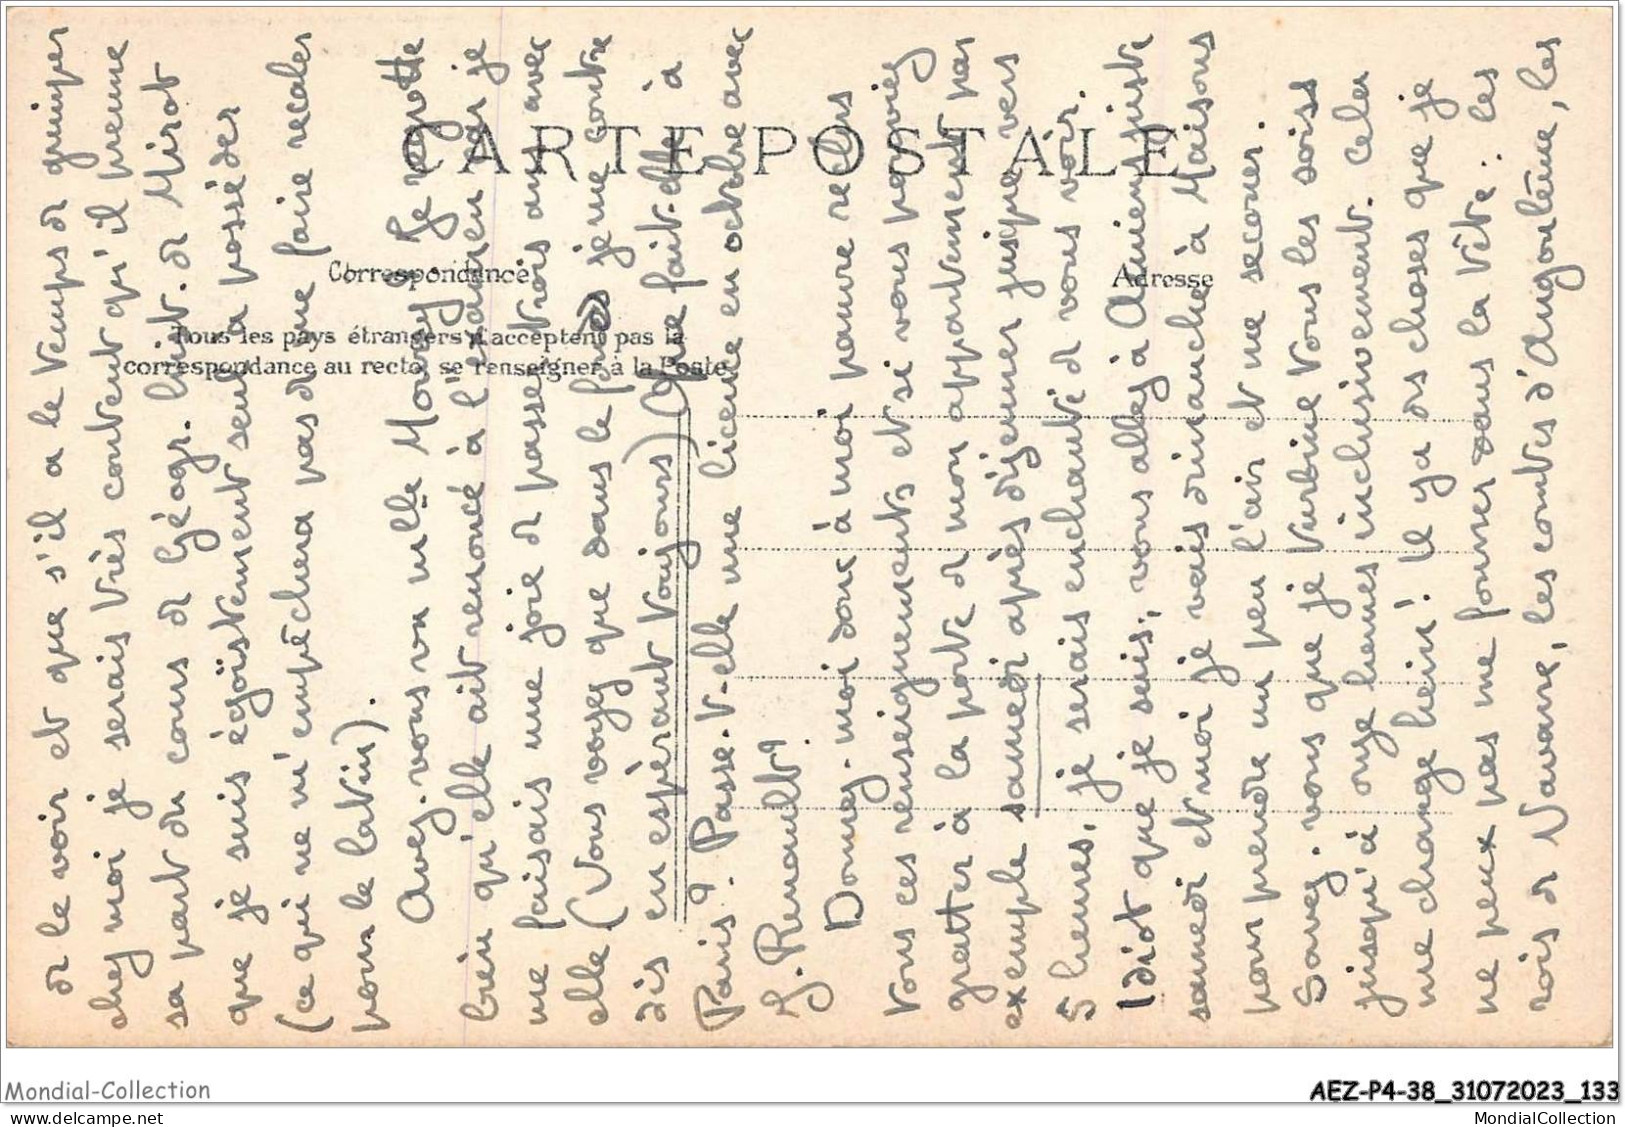 CARTE POSTALE
Correspondance
Adresse
Tous les pays étrangers n'acceptent pas la
correspondance au recto, se renseigner à la Poste
de le voir et que s'il a le temps de grimper
chez moi je serais très content qu'il prenne
sa part du cours de Géogr. hist. de Mirot
que je suis égoïstement seul à posséder
(ce qui ne m'empêchera pas de me faire recaler
pour le latin).
Avez-vous vu melle Mouzay Je regrette
bien qu'elle ait renoncé à l'examen car je
me faisais une joie de passer trois ans avec
elle (Vous voyez que dans le fond je me contre
dis en espérant toujours) Que fait-elle à
Paris? Passe-t-elle une licence en octobre avec
G. Renault?
Donnez-moi donc à moi pauvre reclus
tous ces renseignements et si vous pouviez
gratter à la porte de mon appartement par
exemple samedi après déjeuner jusque vers
5 heures, je serais enchanté de vous voir.
Idiot que je suis, vous allez à Amiens juste
samedi et moi je vais dimanche à Maisons
pour prendre un peu l'air et me secouer.
Savez-vous que je turbine tous les soirs
jusqu'à onze heures inclusivement. Cela
me change hein! Il y a des choses que je
ne peux pas me fourrer dans la tête: les
rois de Navarre, les comtes d'Angoulême, les
Mondial-Collection
AEZ-P4-38_31072023_133
delcampe.net
MondialCollection